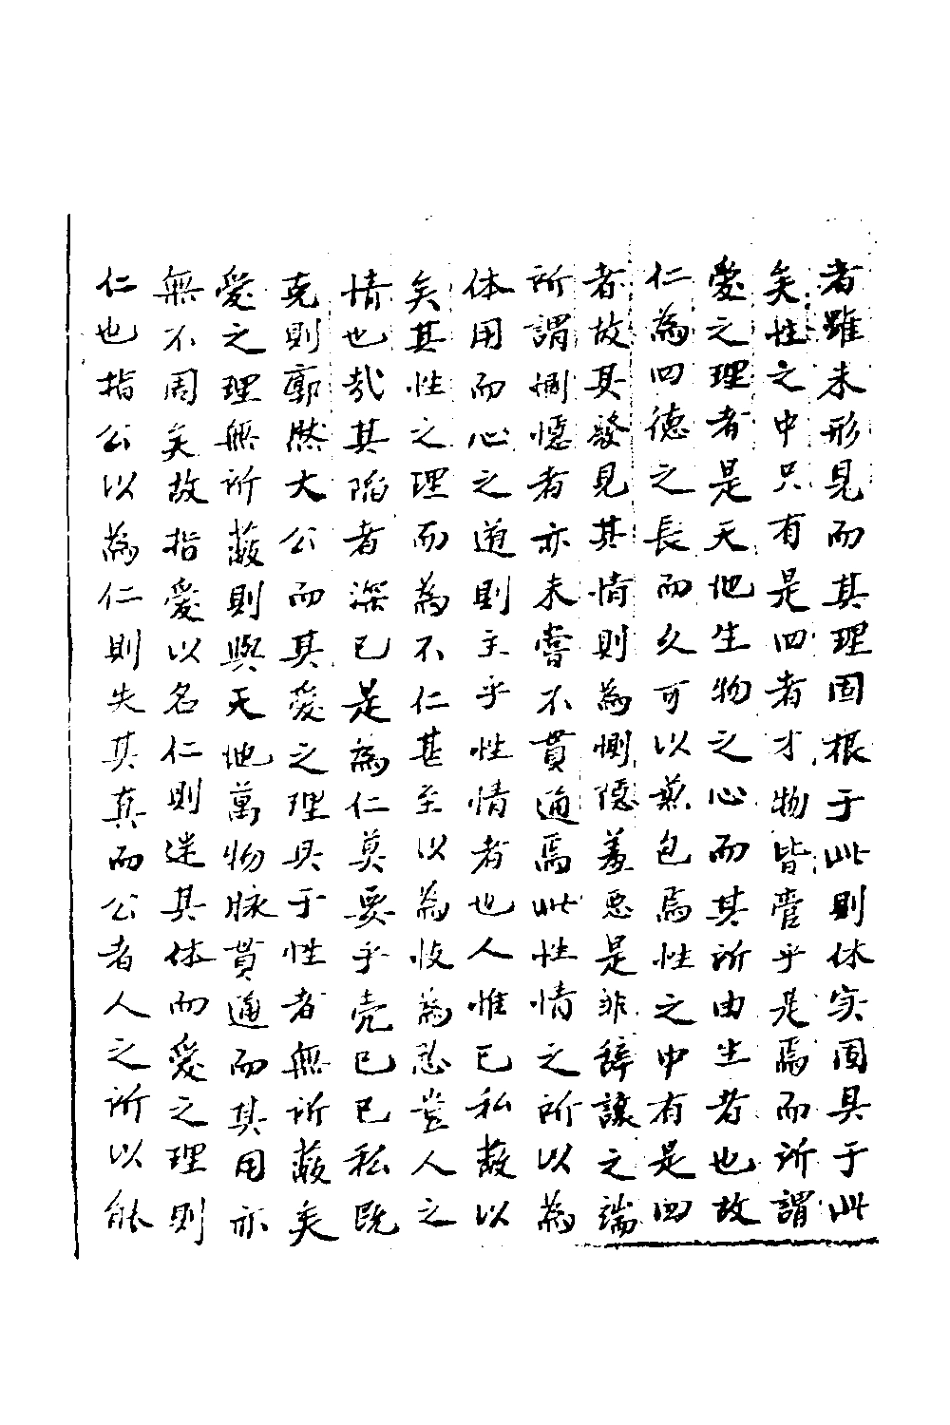 者雖未形見而其理固根于此則体实固具于此
矣性之中只有是四者才物皆管乎是焉而所謂
愛之理者是天地生物之心而其所由生者也故
仁為四德之長而久可以兼包焉性之中有是四
者故其發見其情則為惻隱羞惡是非辭讓之端
所謂惻隱者亦未嘗不貫通焉此性情之所以為
体用而心之道則主乎性情者也人惟己私蔽以
矣其性之理而為不仁甚至以為忮為忍豈人之
情也哉其陷者深已是為仁莫要乎克己已私既
克則廓然大公而其愛之理具于性者無所蔽矣
愛之理無所蔽則與天地萬物脉貫通而其用亦
無不周矣故指愛以名仁則迷其体而愛之理則
仁也指公以為仁則失其真而公者人之所以能